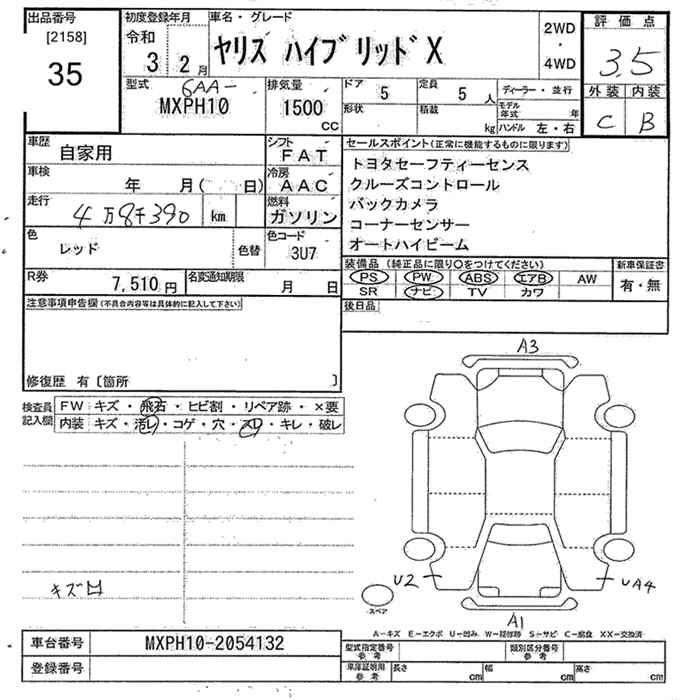 出品番号
[2158]
35
初度登録年月
令和
3 2月
車名・グレード
ヤリス ハイブリッド X
2WD
・
4WD
評価点
3.5
外装 内装
C B
型式
6AA-
MXPH10
排気量
1500
cc
ドア 5
定員 5 人
形状
積載 kg
ディーラー・並行
モデル年式 年
ハンドル 左・右
車歴
自家用
シフト
FAT
車検
年 月( 日)
冷房
AAC
走行
4万8千390 km
燃料
ガソリン
色
レッド
色替
色コード
3U7
R券
7,510円
名変通知期限
月 日
セールスポイント(正常に機能するものに限ります)
トヨタセーフティーセンス
クルーズコントロール
バックカメラ
コーナーセンサー
オートハイビーム
装備品(純正品に限り○をつけてください)
PS PW ABS エアB AW
SR ナビ TV カワ
新車保証書
有・無
後日品
注意事項申告欄(不具合内容等は具体的に記入して下さい)
修復歴 有〔箇所 〕
検査員
記入欄
FW キズ・飛石・ヒビ割・リペア跡・×要
内装 キズ・汚レ・コゲ・穴・スレ・キレ・破レ
キズ凹
A3
U2
UA4
スペア
A1
A-キズ E-エクボ U-凹み W-補修跡 S-サビ C-腐食 XX-交換済
車台番号
MXPH10-2054132
登録番号
型式指定番号
参考
類別区分番号
参考
車庫証明用
参考
長さ cm
幅 cm
高さ cm